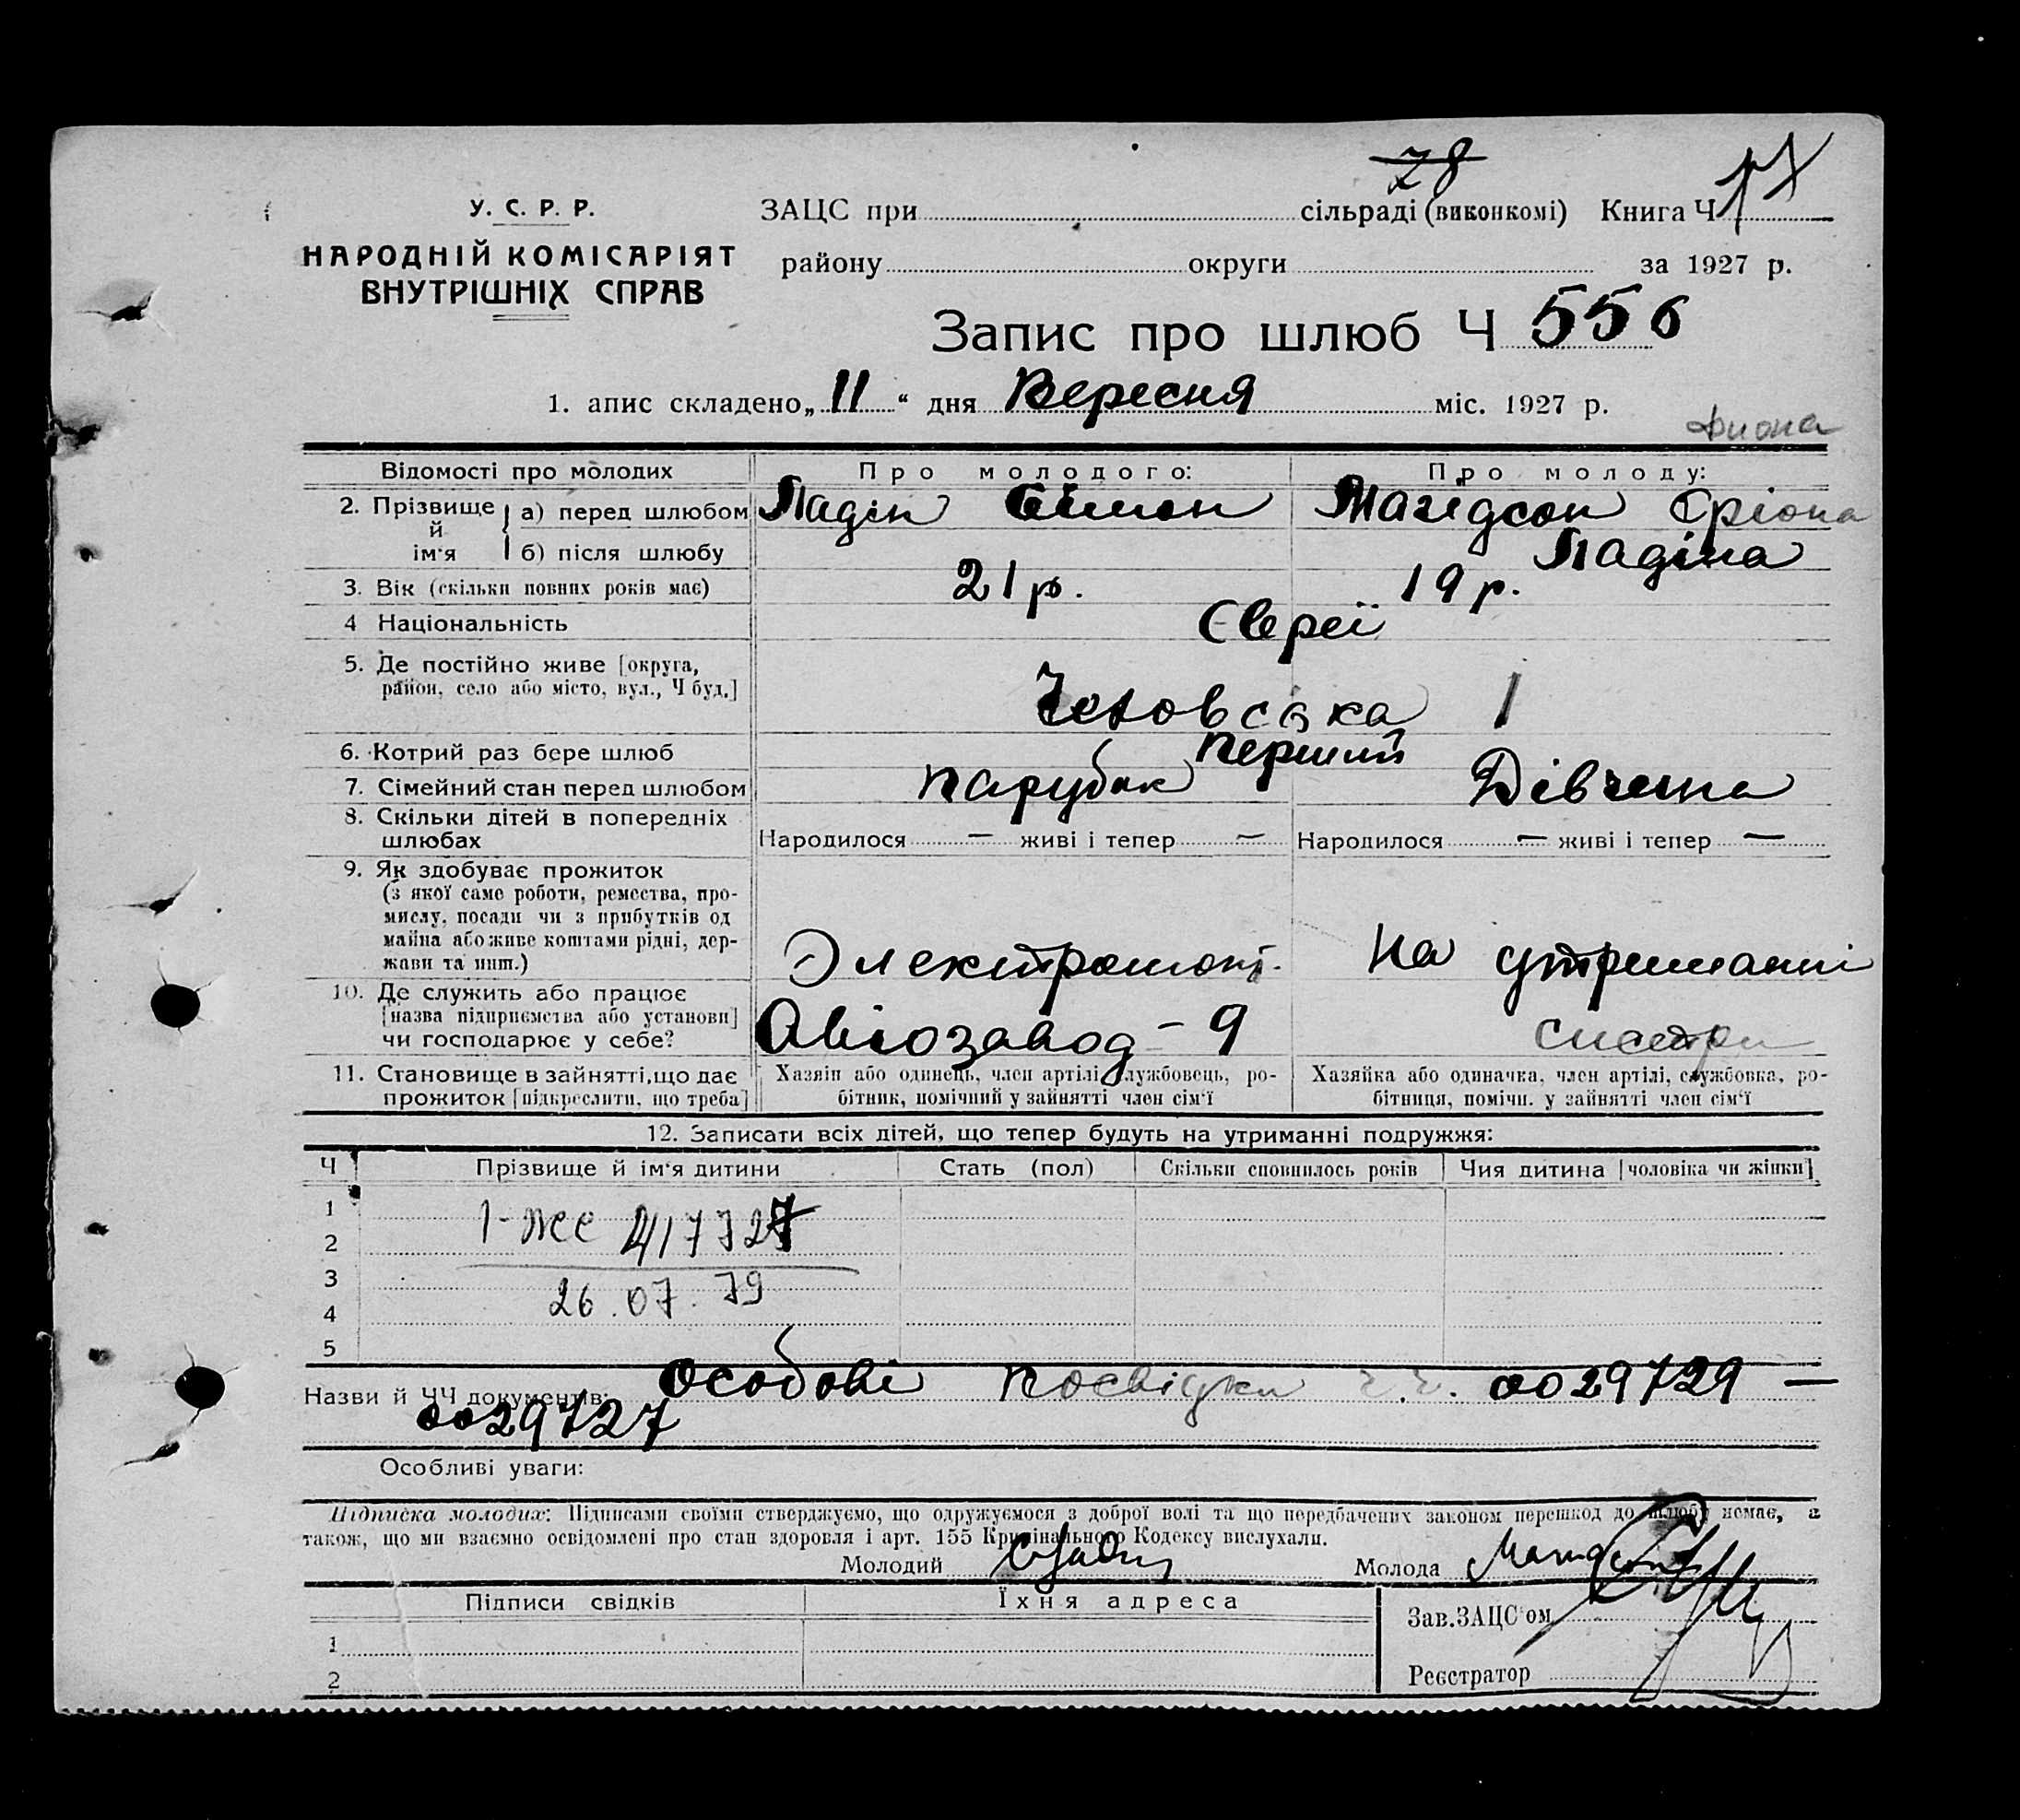 78
У. С. Р. Р.
НАРОДНІЙ КОМІСАРІЯТ
ВНУТРІШНІХ СПРАВ
ЗАЦС при сільраді (виконкомі) Книга Ч 17
району округи за 1927 р.
Запис про шлюб Ч 556
1. апис складено „11“ дня Вересня міс. 1927 р.
Відомості про молодих Про молодого: Про молоду:
2. Прізвище й ім'я а) перед шлюбом Ладін Сімон Магидсон Фріона
б) після шлюбу Ладіна
3. Вік (скільки повних років має) 21 р. 19 р.
4 Національність Євреї
5. Де постійно живе [округа,
район, село або місто, вул., Ч буд.] 1
6. Котрий раз бере шлюб Перший
7. Сімейний стан перед шлюбом парубок Дівчина
8. Скільки дітей в попередніх
шлюбах Народилося — живі і тепер — Народилося — живі і тепер —
9. Як здобуває прожиток
(з якої саме роботи, ремества, про-
мислу, посади чи з прибутків од
майна або живе коштами рідні, дер-
жави та инш.) Электромонт. На утриманні
10. Де служить або працює
[назва підприємства або установи]
чи господарює у себе? Авіозавод - 9 систри
11. Становище в зайнятті, що дає
прожиток [підкреслити, що треба]
Хазяїн або одинець, член артілі службовець, ро-
бітник, помічний у зайнятті член сім'ї
Хазяйка або одиначка, член артілі, службовка, ро-
бітниця, помічн. у зайнятті член сім'ї
12. Записати всіх дітей, що тепер будуть на утриманні подружжя:
Ч Прізвище й ім'я дитини Стать (пол) Скільки сповнилось років Чия дитина [чоловіка чи жінки]
1
2
3
4
5
26.07.79
Назви й ЧЧ документів: Особові посвідки ч.ч. 0029729 —
0029727
Особливі уваги:
Підписка молодих: Підписами своїми стверджуємо, що одружуємося з доброї волі та що передбачених законом перешкод до шлюбу немає, а
також, що ми взаємно освідомлені про стан здоровля і арт. 155 Кримінального Кодексу вислухали.
Молодий Молода
Підписи свідків Їхня адреса
1
2
Зав. ЗАЦС'ом
Реєстратор